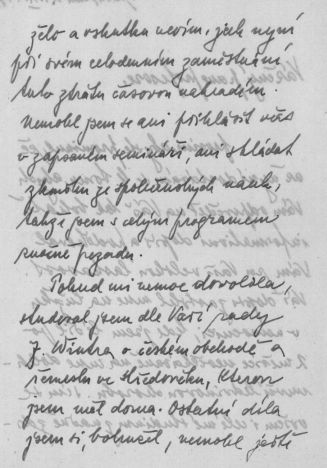 zělo a vskutku nevím, jak nyní
při svém celodenním zaměstnání,
tuto ztrátu časovou nahradím.
Nemohl jsem se ani přihlásit včas
v zapsaném semináři, ani skládat
zkoušku ze společenských nauk,
takže jsem s celým programem
značně pozadu.
Pokud mi nemoc dovolila,
studoval jsem dle Vaší rady
Z. Wintra o českém obchodě a
řemeslu ve středověku, kterou
jsem měl doma. Ostatní díla
jsem si, bohužel, nemohl ještě